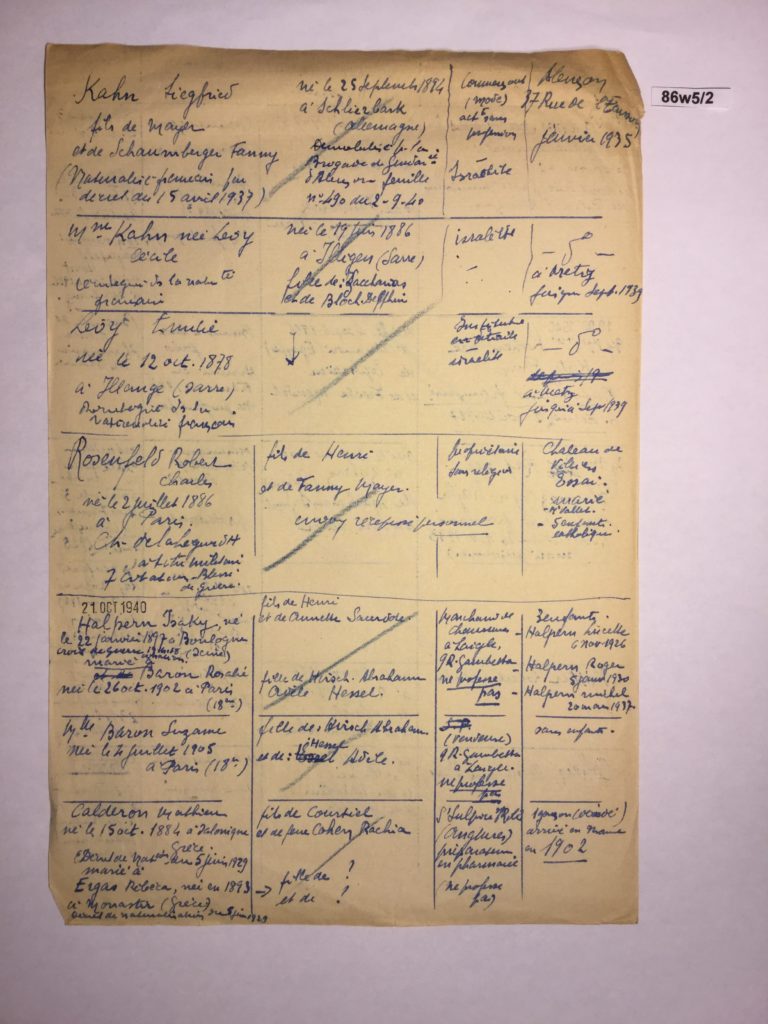 86w5/2
Kahn Siegfried
fils de Mayer
et de Schaumberger Fanny
(Naturalisé français par
décret du 15 avril 1937)
né le 25 Septembre 1884
à Schlierbach
(Allemagne)
Brigade de Gendie
d'Alençon feuille
n° 490 du 2-9-40
Commerçant
(mode)
actt sans
profession
Israélite
Alençon
27 Rue de
janvier 1935
Mme Kahn née Levy
Cécile
française
née le 19 juin 1886
à Illigen (Sarre)
fille de: Zacharias
et de Bloch
israélite
- d° -
à Metz
jusque Sept. 1939
Levy Emilie
née le 12 oct. 1878
à Illange (Sarre)
française
Institutrice
en retraite
israélite
- d° -
depuis 19
à Metz
jusqu'à Sept 1939
Rosenfeld Robert
Charles
né le 2 juillet 1886
à Paris
Ch. de la Legion d'H
à titre militaire
7 Citations - Blessé
de Guerre.
fils de Henri
et de Fanny Mayer.
envoi récépissé personnel
Propriétaire
sans religion
Chateau de
Essai.
marié
5 enfants
catholique.
21 OCT 1940
Halpern Isaky, né
le 22 janvier 1897 à Boulogne
croix de guerre 14-18 (Seine)
marié à
Baron Rosalie
née le 26 oct. 1902 à Paris
(18e)
fils de Henri
et de Annette Sacerdote.
fille de Hirsch. Abraham
Adèle Hessel.
Marchand de
Chaussures
à Laigle.
9 R. Gambetta
ne professe
pas -
3 enfants.
Halpern Lucette
6 nov 1926
Halpern Roger
5 janv 1930
Halpern Michel
20 mars 1937
Mlle Baron Suzanne
née le 4 juillet 1905
à Paris (18e)
fille de: Hirsch Abraham.
Hessel
et de: Adèle.
S.P.
(vendeuse)
9 R. Gambetta
à Laigle.
ne professe
pas
sans enfants.
Calderon Mathieu
né le 15 oct. 1884 à Salonique
Grèce.
(Décret de Natton du 5 juin 1929
marié à
Ergas Rebeca, née en 1893
à Monastir (Grèce)
Décret de naturalisation du 5 juin 1929
fils de Courtiel
et de feue Cohen Rachia
→ fille de ?
et de ?
St Sulpice s/Rille
préparateur
en pharmacie
(ne professe
pas)
1 garçon (décédé)
arrivé en France
en 1902